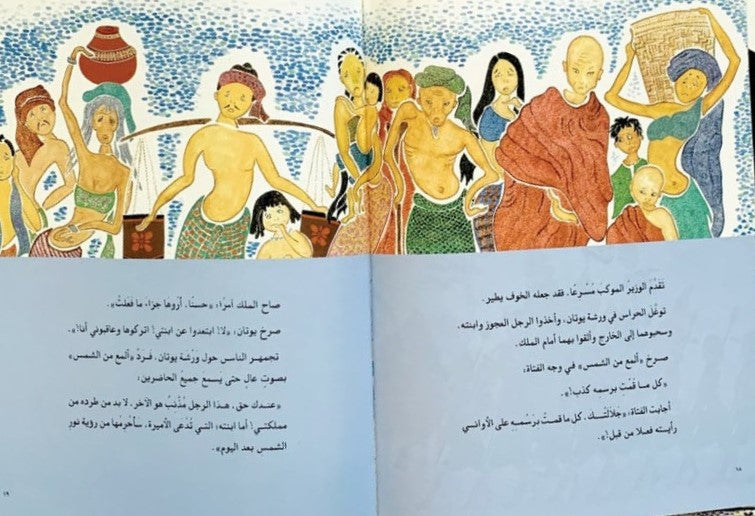 تَقَدَّمَ الوزيرُ الموكبَ مُسْرِعًا، فقد جعله الخوف يطير.
توغَّل الحراس في ورشة يوتان، وأخذوا الرجل العجوز وابنته،
وسحبوهما إلى الخارج وألقوا بهما أمام الملك.
صرخ «ألمع من الشمس» في وجه الفتاة:
«كل ما قمْتِ برسمه كذب!».
أجابت الفتاة: «جَلالَتُـك، كل ما قمتُ برَسْمِهِ على الأواني
رأيته فعلا من قبل!».
١٨
صاح الملك آمرًا: «حسنًا، أرُوها جزاء ما فعَلتْ».
صرخ يوتان: «لا! ابتعدوا عن ابنتي! اتركوها وعاقبوني أنا!».
تجمهر الناس حول ورشة يوتان، فَـرَدَّ «ألمع من الشمس»
بصوتٍ عالٍ حتى يَسمعَ جميعُ الحاضرين:
«عنـدك حق، هـذا الرجل مُذْنِبٌ هو الآخر، لا بد من طرده من
مملكتـي! أما ابنته؛ التـي تُدْعى الأميرة، سأحْرِمُها من رؤية نور
الشمس بعد اليوم».
١٩